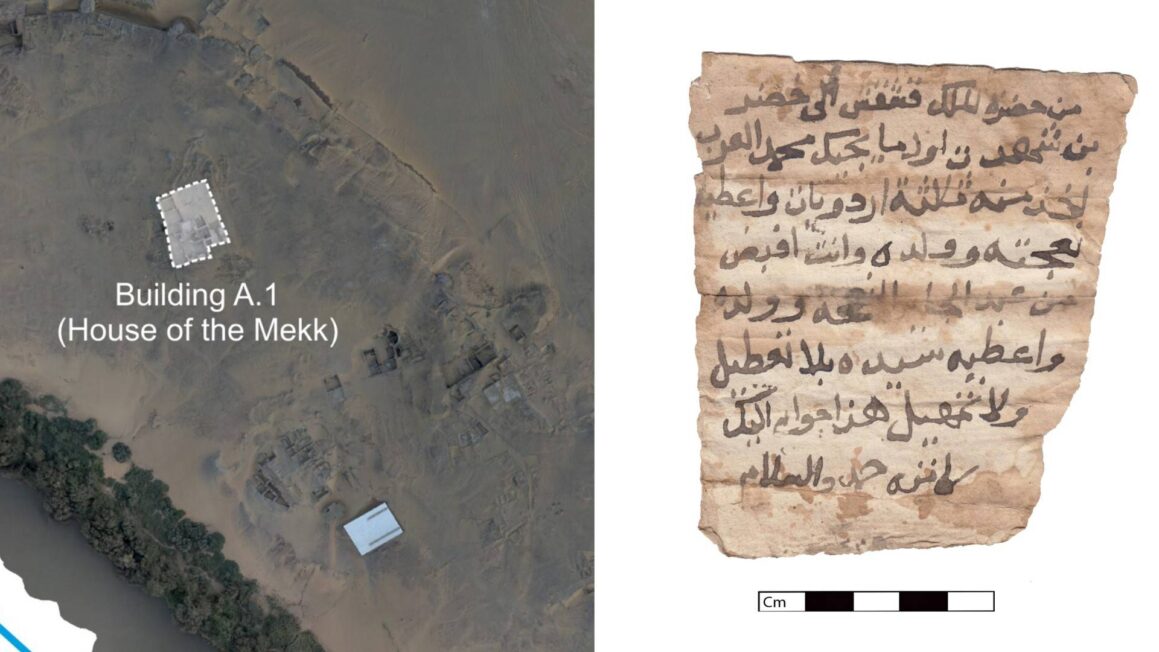 Building A.1
(House of the Mekk)
من حضره الملك قشقش الى خضر
بن ما يجيك محمد العرب
منه ثلثة اردويات واعطيه
نعجته وولده وانت اقبض
من عبد النعجه وولده
واعطيه سيده بلا تعطيل
ولا تمهيل هذا جوابي اليك
كاتبه حمد والسلام
Cm